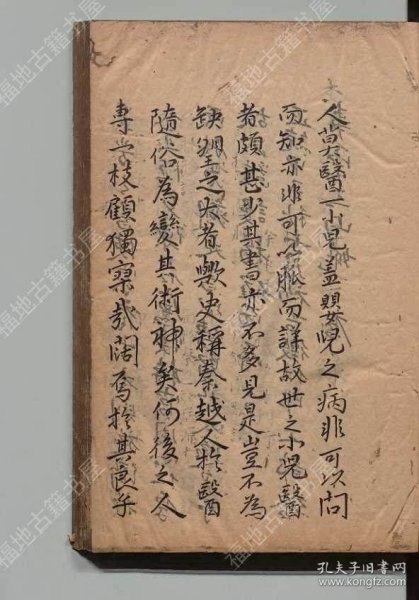 人嘗有醫一小兒蓋嬰兒之病非可以問
而知亦非可以脈而詳故世之小兒醫
者頗甚少其書亦不多見是豈不為
缺望之大者歟史稱秦越人於醫
隨俗為變其術神矣何後之人
專一枝顧獨寥哉闊焉於其良乎
福地古籍书屋
孔夫子旧书网
www.kongfz.com